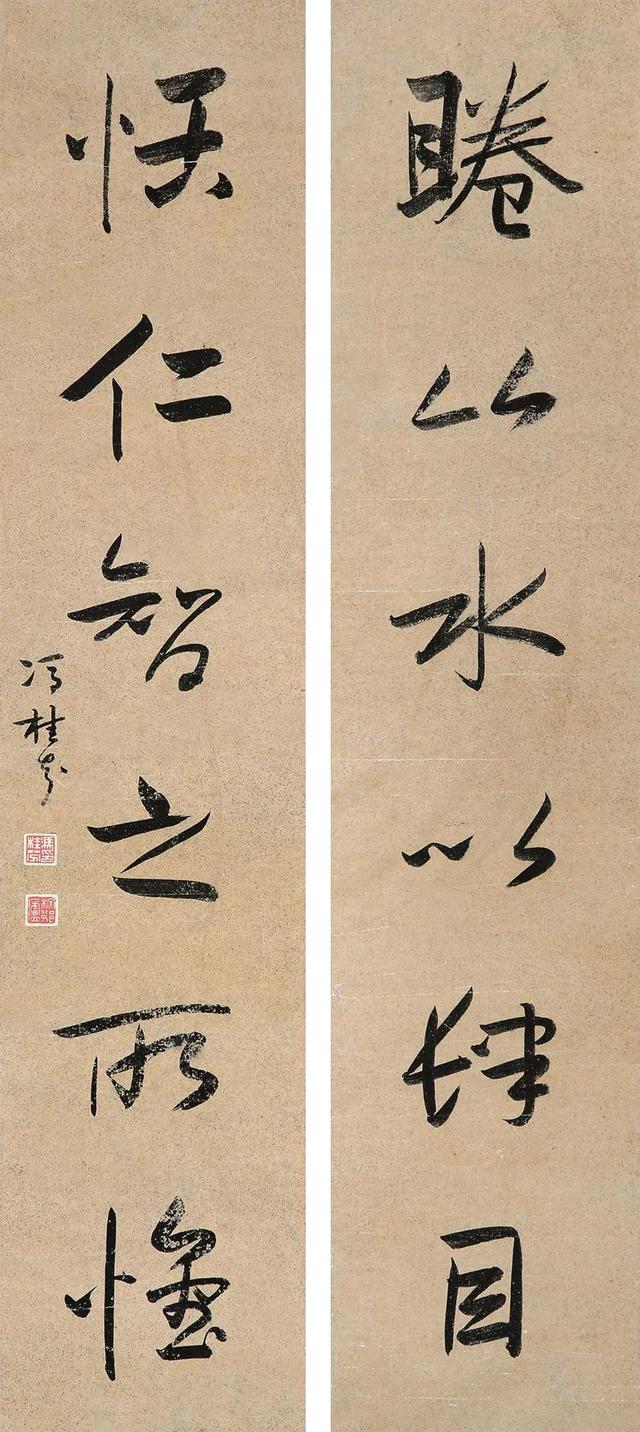 睠水以肆目
恢仁智之所
馮桂芬